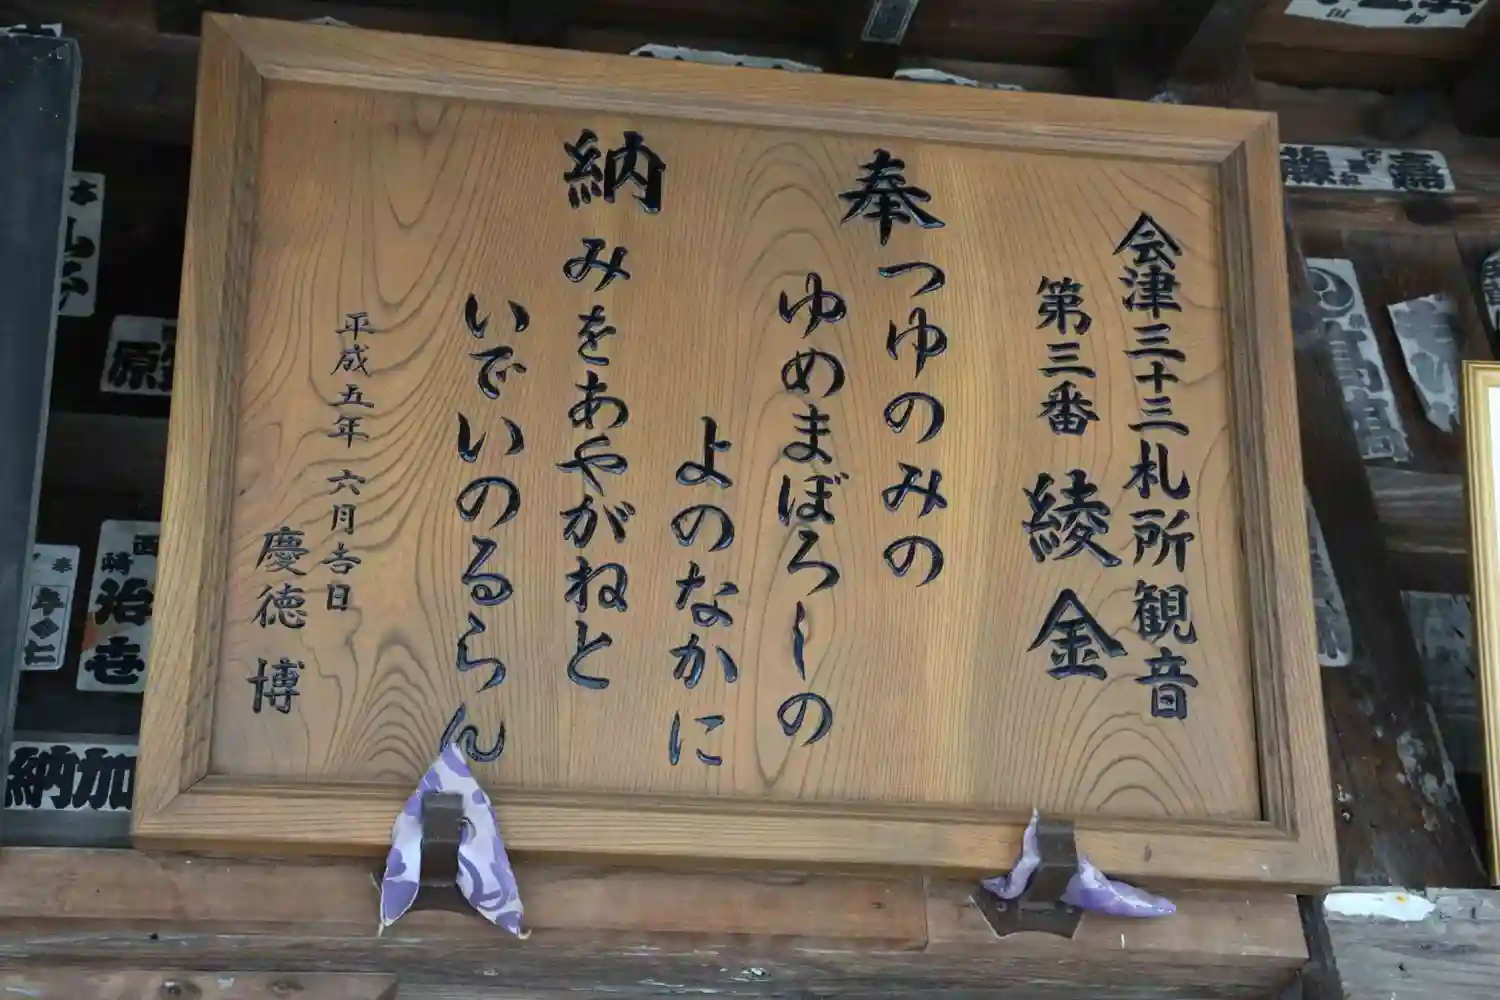 会津三十三札所観音
第三番 綾金
奉
つゆのみの
ゆめまぼろしの
よのなかに
納
みをあやがねと
いでいのるらん
平成五年六月吉日
慶徳 博
納加
原
西
崎
治
奉
嘉
藤
高